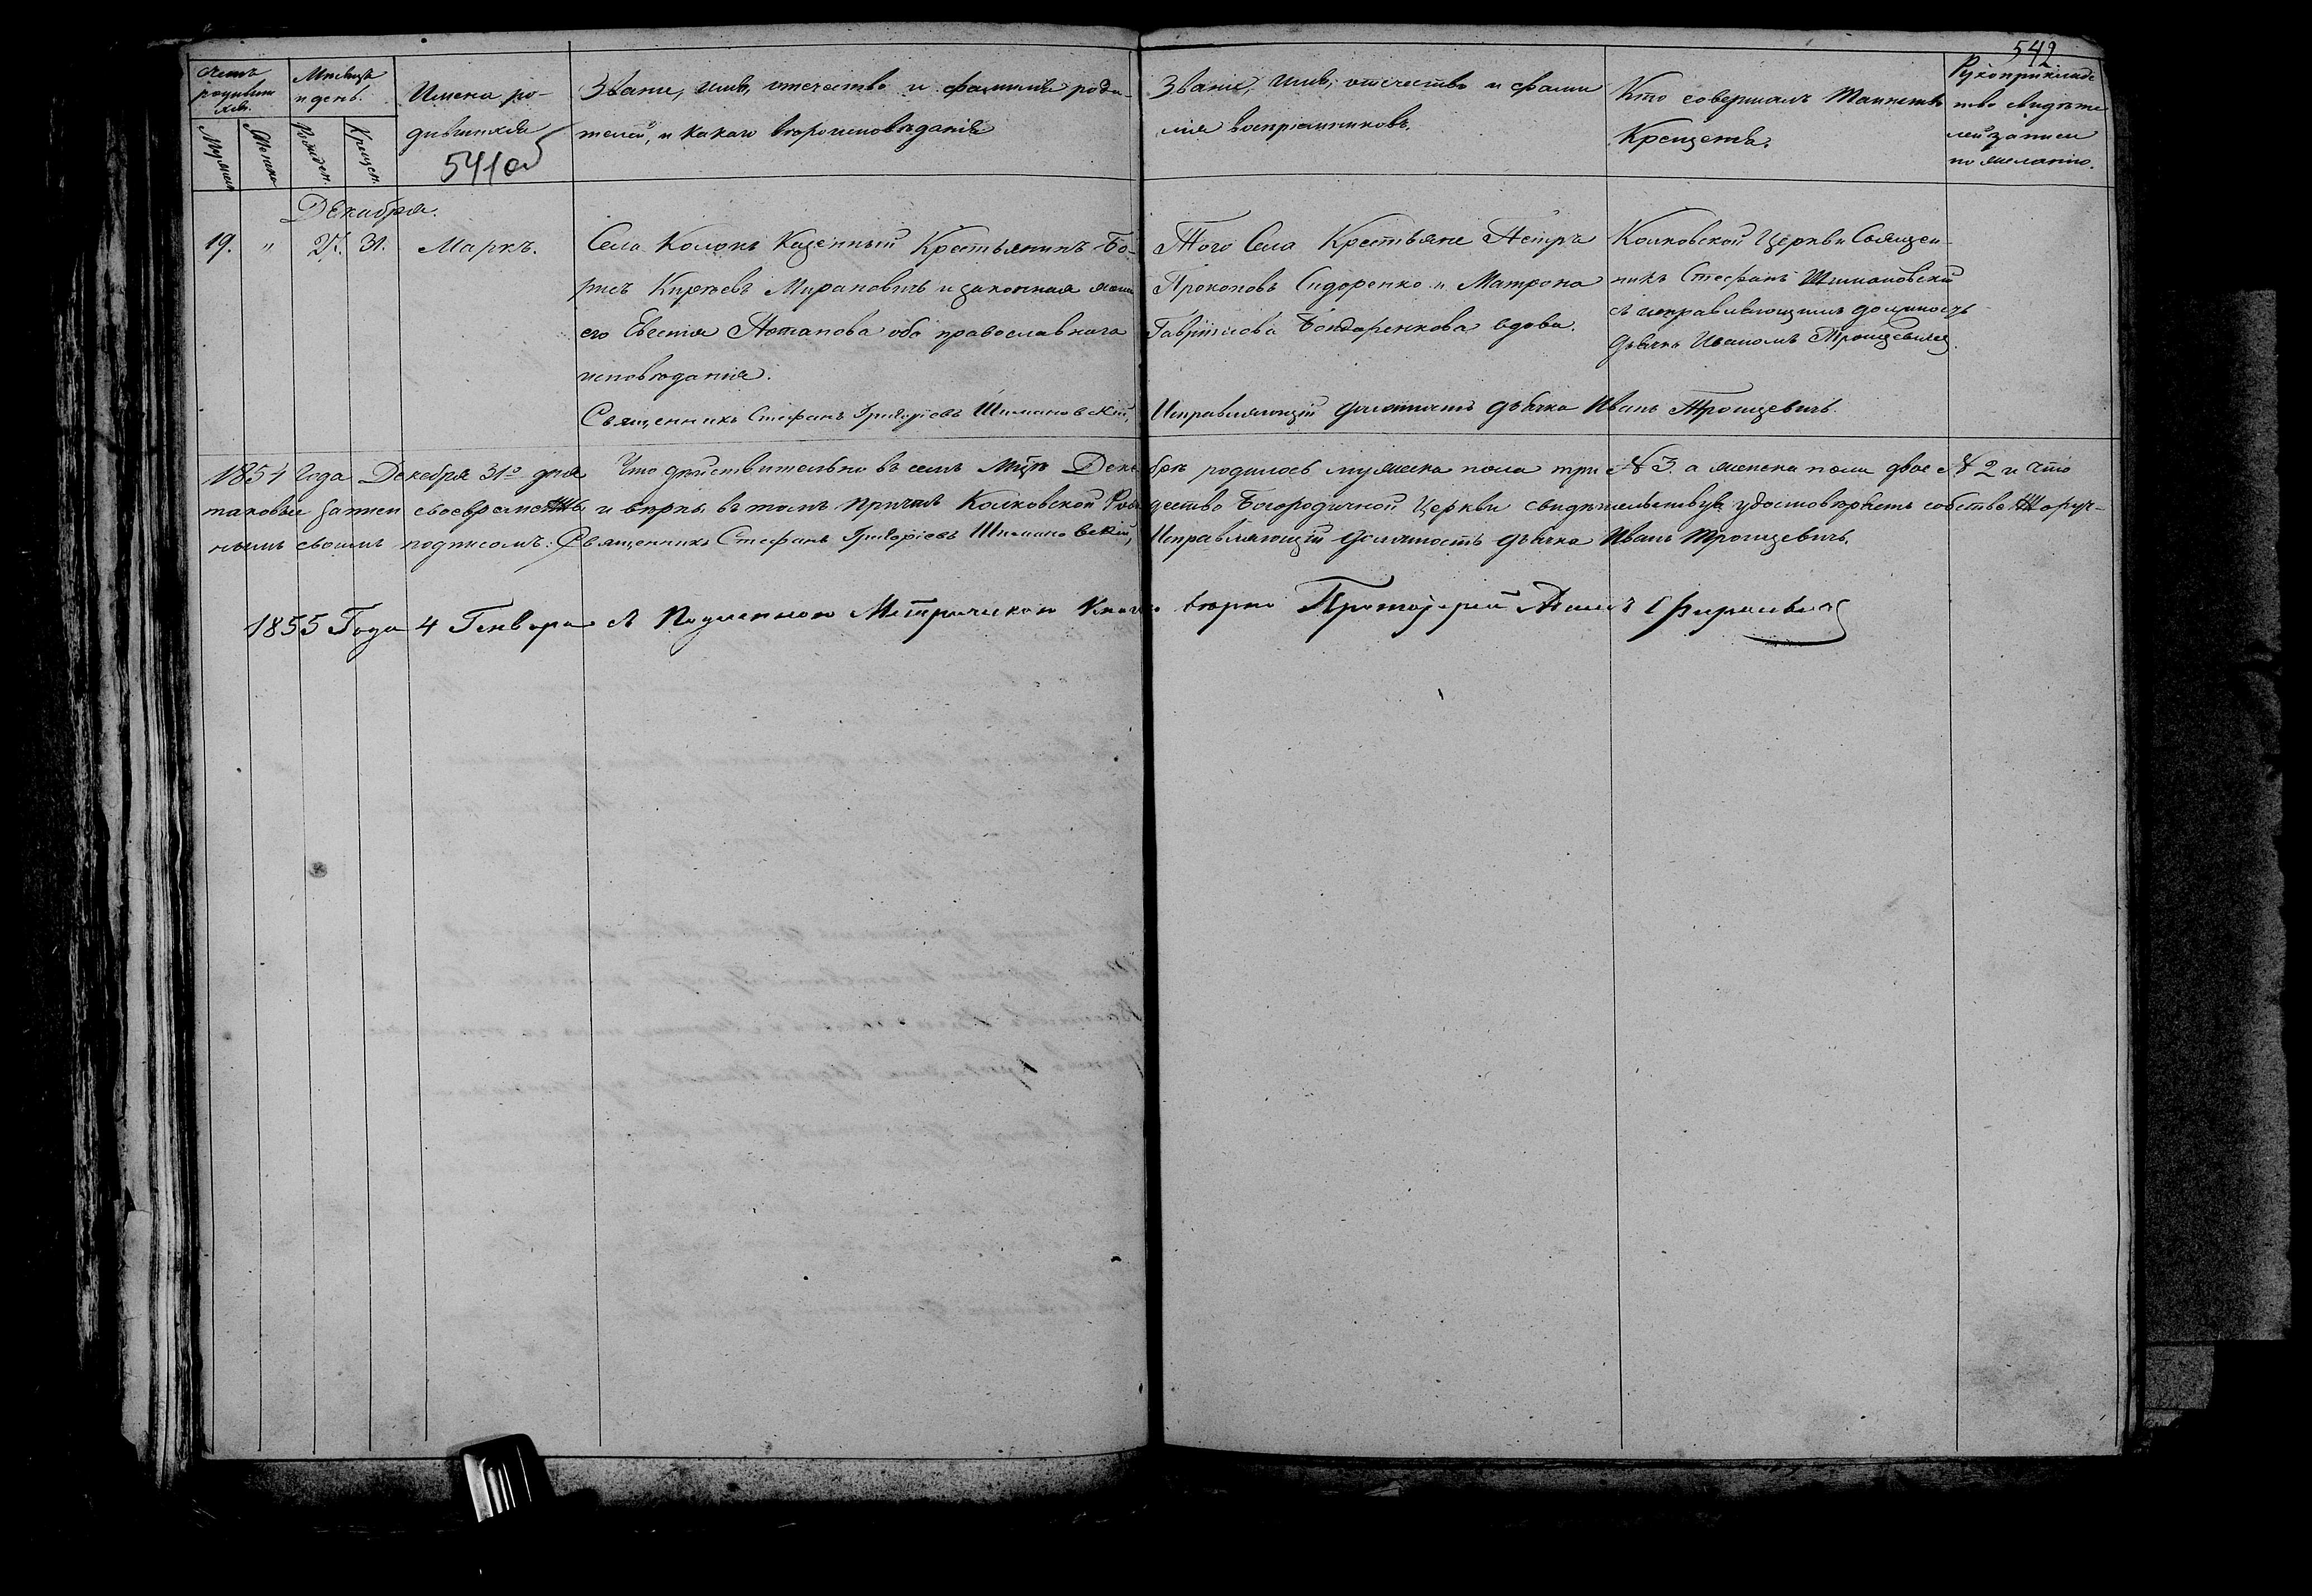 542
Счетъ родившихся.
Мѣсяцъ и день.
Имена родившихся
541об
Званіе, имя, отечество и фамилія роди-
телей, и какого вѣроисповѣданія
Званіе, имя, отечество и фами
лія воспріемниковъ.
Кто совершалъ Таинство
Крещенія.
Рукоприкладс
тво свидѣте
лей записи
по желанію.
Мужеска
Женска
Рожден.
Крещен.
Декабря.
19. " 27. 31. Маркъ.
Села Колокъ Казенный Крестьянинъ Бо-
рисъ Кирѣевъ Миранович и законная жена
его Евгенія Потапова оба православнаго
исповѣданія.
Того Села Крестьяне Петръ
Прокоповъ Сидоренко и Матрона
Гавріилова Бондаренкова вдова.
Колковской Церкви Священ-
никъ Стефанъ Шимановскій
съ исправляющимъ должность
дьячка Иваномъ Троицевичемъ.
Священникъ Стефанъ Григоріевъ Шимановскій, Исправляющій должность дьячка Иванъ Троицевичъ.
1854 Года Декабря 31го дня Что дѣйствительно въ семъ Мцѣ Декабрѣ родилось мужеска пола три № 3. а женска пола двое № 2 и что
таковыя записи своевременны и вѣрны въ томъ причтъ Колковской Рождество Богородичной Церкви свидѣтельствуя удостовѣряетъ собственноруч-
нымъ своимъ подписомъ: Священникъ Стефанъ Григоріевъ Шимановскій, Исправляющій должность дьячка Иванъ Троицевичъ.
1855 Года 4 Генваря съ Подленною Метрическою Книгою вѣрно Протоіерей